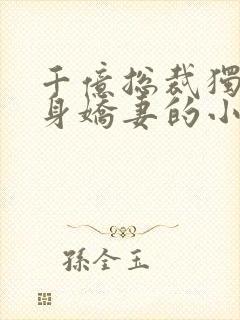 千億总裁獨
身嬌妻的小
孫全玉